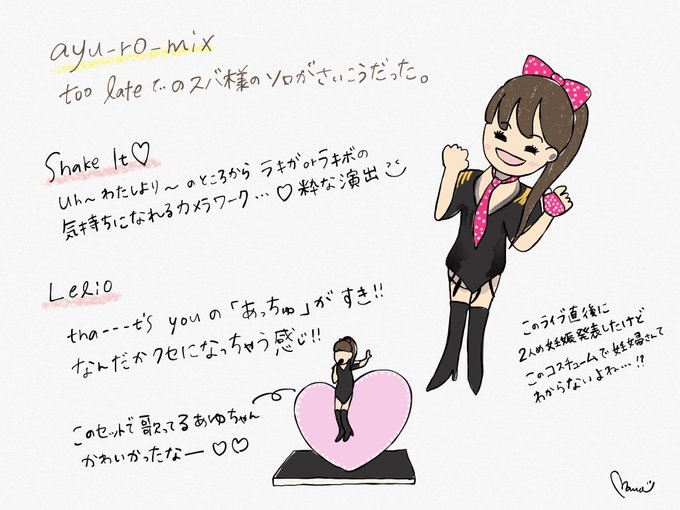 ayu-ro-mix
too lateでのスバ様のソロがさいこうだった。
Shake It♡
Uh〜わたしより〜のところからラキガorラキボの
気持ちになれるカメラワーク…♡粋な演出
Lelio
tha---t's youの「あっちゅ」がすき!!
なんだかクセになっちゃう感じ!!
このセットで歌ってるあゆちゃん
かわいかったなー♡♡
このライブ直後に
2人め妊娠発表したけど
このコスチュームで妊婦さんて
わからないよね…!?